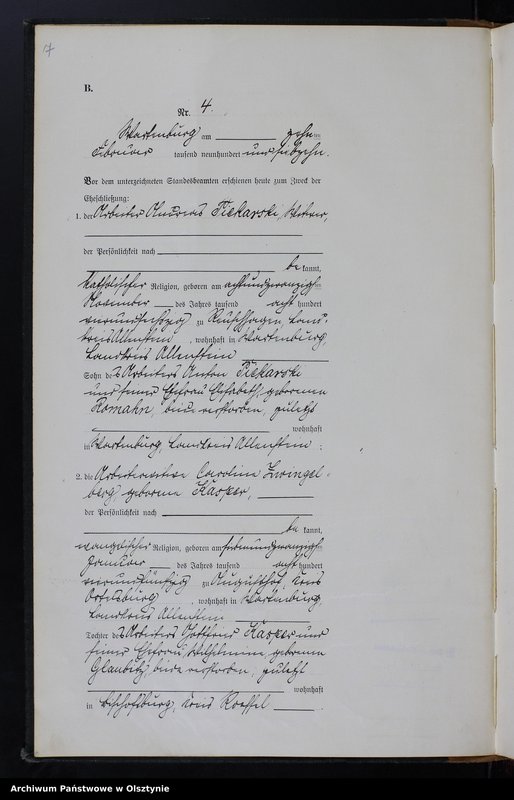 17
B.
Nr. 4.
Wartenburg am zehn ten
Februar tausend neunhundert und siebzehn.
Vor dem unterzeichneten Standesbeamten erschienen heute zum Zweck der
Eheschließung:
1. der Arbeiter Andreas Piekarski, Witwer,
der Persönlichkeit nach
be kannt,
katholischer Religion, geboren am achtundzwanzigsten
November des Jahres tausend acht hundert
vierundsechszig zu Reuschhagen, Land-
kreis Allenstein, wohnhaft in Wartenburg,
Landkreis Allenstein
Sohn des Arbeiters Anton Piekarski
und seiner Ehefrau Elisabeth, geborenen
Romahn, beide verstorben, zuletzt
wohnhaft
in Wartenburg, Landkreis Allenstein.
2. die Arbeiterwitwe Caroline Zwingel-
berg, geborene Kasper,
der Persönlichkeit nach
be kannt,
evangelischer Religion, geboren am siebenundzwanzigsten
Januar des Jahres tausend acht hundert
vierundfünfzig zu Augusthof, Kreis
Ortelsburg, wohnhaft in Wartenburg,
Landkreis Allenstein
Tochter des Arbeiters Gottfried Kasper und
seiner Ehefrau, Wilhelmine, geborenen
Glaubitz, beide verstorben, zuletzt
wohnhaft
in Bischofsburg, Kreis Roessel.
Archiwum Państwowe w Olsztynie